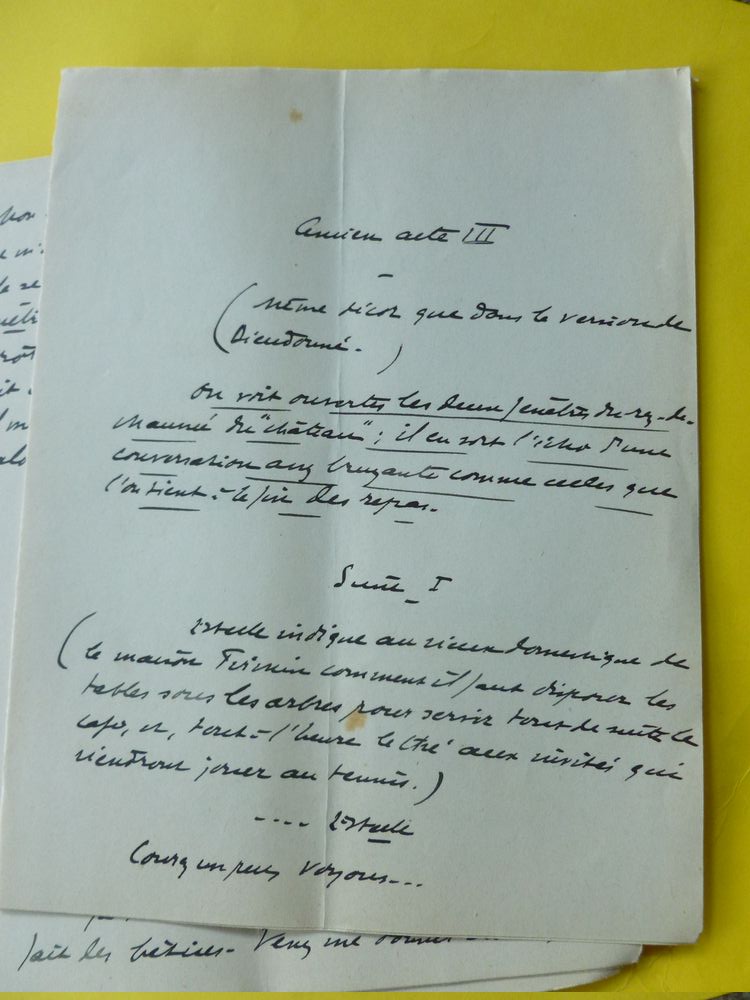 Ancien acte III
(même décor que dans la version de
Dieudonné.)
On voit ouvertes les deux fenêtres du rez-de-
chaussée du "château" ; il en sort l'écho d'une
conversation assez bruyante comme celles que
l'on tient à la fin des repas.
Scène I
(Estelle indique au vieux domestique de
la maison Firmin comment il faut disposer les
tables sous les arbres pour servir tout de suite le
café, et, tout à l'heure le thé aux invités qui
viendront jouer au tennis.)
.... Estelle
Courez un peu, voyons...
fait des bêtises. Venez me donner